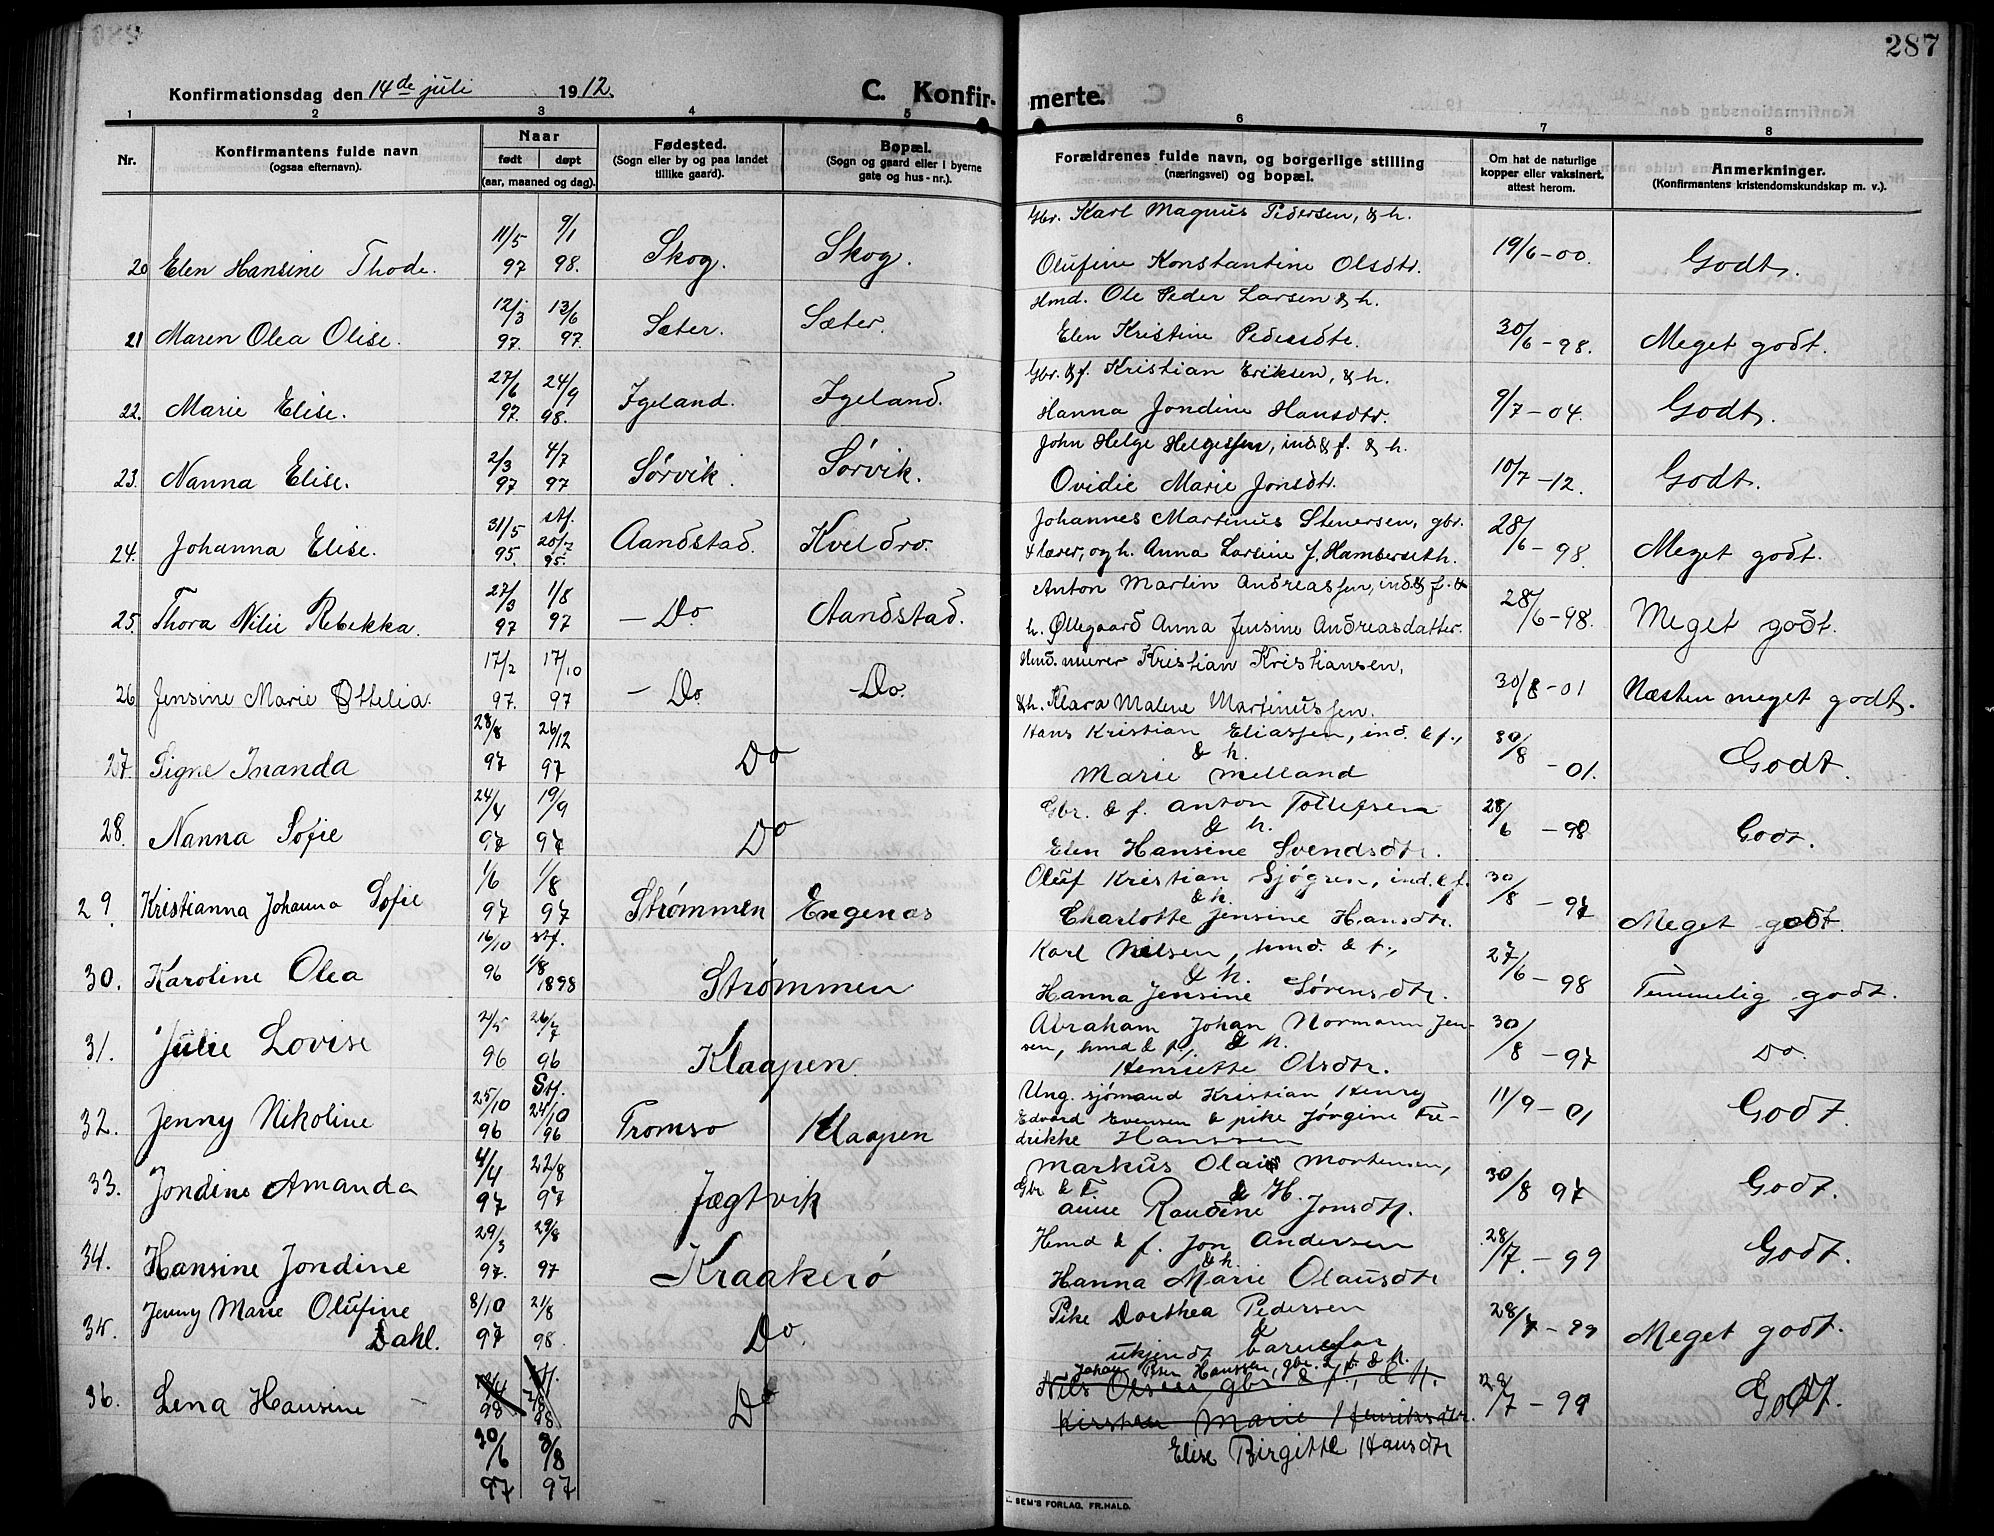 287
Konfirmationsdag den 14de juli 1912.
C. Konfir- merte.
1 2 3 4 5 6 7 8
Nr.
Konfirmantens fulde navn
(ogsaa efternavn).
Naar
født døpt
(aar, maaned og dag).
Fødested.
(Sogn eller by og paa landet
tillike gaard).
Bopæl.
(Sogn og gaard eller i byerne
gate og hus-nr.).
Forældrenes fulde navn, og borgerlige stilling
(næringsvei) og bopæl.
Om hat de naturlige
kopper eller vaksinert,
attest herom.
Anmerkninger.
(Konfirmantens kristendomskundskap m. v.).
11/5 9/1 Gbr. Karl Magnus Pedersen, & h.
20 Elen Hansine Thode. 97 98. Skog. Skog. Olufine Konstantine Olsdtr. 19/6-00. Godt.
12/3 13/6 Hmd. Ole Peder Larsen & h.
21 Maren Olea Olise. 97. 97. Sæter. Sæter. Elen Kristine Pedersdtr. 30/6-98. Meget godt.
27/6 24/9 Gbr. & f. Kristian Eriksen, & h.
22. Marie Elise. 97. 98. Igeland. Igeland. Hanna Jondine Hansdtr. 9/7-04. Godt.
2/3 4/7 John Helge Helgessen, ind. & f. & h.
23. Nanna Elise. 97 97 Sørvik. Sørvik. Ovidie Marie Jonsdtr. 10/7-12. Godt.
31/5 stf. 20/7 Johannes Martinus Stenersen, gbr.
24. Johanna Elise. 95. 95. Aandstad. Kveldro. & lærer, og h. Anna Lartine f. Hamberseth. 28/6-98. Meget godt.
27/3 1/8 Anton Martin Andreassen, ind. & f. &
25. Thora Nilie Rebekka. 97 97 - Do Aandstad. h. Øllegaard Anna Jensine Andreasdatter. 28/6-98. Meget godt.
17/2 17/10 Hmd. murer Kristian Kristiansen,
26 Jensine Marie Ottelia. 97. 97 - Do. - Do. & h. Klara Malene Martinussen. 30/8-01 Næsten meget godt.
28/8 26/12 Hans Kristian Eliassen, ind. & f.,
& h.
27. Signe Inanda 97 97 Do Marie Melland 30/8-01. Godt.
24/4 19/9 Gbr. & f. Anton Tollefsen
& h.
28. Nanna Sofie 97 97 Do Elen Hansine Svendsdtr. 28/6-98 Godt.
1/6 1/8 Oluf Kristian Sjøgren, ind. & f.
& h.
29. Kristianna Johanna Sofie 97 97 Strømmen Engenæs Charlotte Jensine Hansdtr. 30/8-97 Meget godt.
16/10 stf. Karl Nilsen, hmd. & f.,
& h.
30. Karoline Olea 96 1/8 1898 Strømmen Hanna Jensine Sørensdtr. 27/6-98 Temmelig godt.
2/5 26/7 Abraham Johan Normann Jen-
sen, hmd & f., & h.
31. Julie Lovise 96 96 Klaapen Henriette Olsdtr. 30/8-97 Do.
25/10 Stf. 24/10 Ung. sjømand Kristian Henry
32. Jenny Nikoline 96 96 Tromsø Klaapen Edvard Evensen & pike Jørgine Fre-
drikke Hanssen 11/9-01 Godt.
4/4 22/8 Markus Olai Mortensen,
Gbr & F. & H.
33. Jondine Amanda 97 97 Jægtvik Anne Randine Jonsdtr. 30/8 97 Godt.
29/3 29/8 Hmd & f. Jon Andersen
& h.
34. Hansine Jondine 97. 97 Kraakerø Hanna Marie Olausdtr 28/7.-99 Godt.
8/10 21/8 Pike Dorthea Pedersen
&
35. Jenny Marie Olufine Dahl. 97 98. Do. ukjendt barnefar 28/7-99 Meget godt.
Johan Peder Hanssen, gbr. & f. & h.
Nils Olsen, gbr & f., & H.
36. Lena Hansine 98 98 Do Kirsten Marie Henriksdtr. 28/7-99 Godt.
30/6 8/8 Elise Birgitte Hansdtr
97 97
SEM'S FORLAG. FR. HALD.